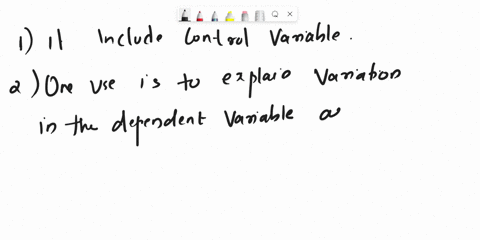 1) it Include Control Variable.
2) One use is to explain Variation
in the dependent Variable a